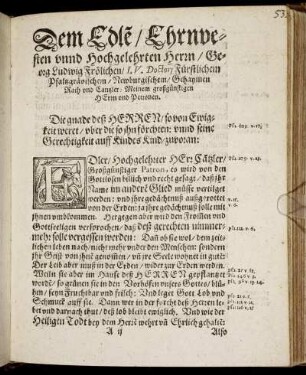 Dem Edlẽ / Ehrnve-
sten vnnd Hochgelehrten Herrn / Ge-
org Ludwig Frölichen / I.V. Doctorj Fürstlichem
Pfaltzgrävischem / Newburgischem / Gehaymen
Rath vnd Cantzler: Meinem großgünstigen
Herrn vnd Patronen.
Die gnade deß HERREN / so von Ewig-
keit weret / vber die so ihn förchten: vnnd seine
Gerechtigkeit auff Kindes Kind / zuvoran:
EDler / Hochgelehrter HErr Cãtzler /
Großgünstiger Patron / es wird von den
Gottlosen billich vnd recht gesagt / daß jhr
Name im andern Glied müsse vertilget
werden: vnd ihre gedächtnuß außgerottet
von der Erden: ja ihre gedächtnuß solle mit
jhnen vmbkommen. Hergegen aber wird den Frommen vnd
Gottseeligen versprochen / daß deß gerechten nimmer-
mehr solle vergessen werden: Daß ob sie wol / dem zeit-
lichen leben nach nicht mehr vnder den Menschen: sondern
jhr Geist von ihnẽ genommen / vnd
Der Lob aber muß in der Erden / vnder
Weiln sie aber im Hause deß HERREN gepflantzet
worden / so grünen sie in den Vorhöfen vnsers Gottes / blü-
hen / seyn Fruchtbar vnd frisch: Vnd leget Gott Lob vnd
Schmuck auff sie. Dann wer in der forcht deß Herren le-
bet vnd darnach thut / deß lob bleibt ewiglich. Vnd wie der
Heiligen Todt bey dem Herrn wehrt vñ Ehrlich gehaltẽ:
A ij Also